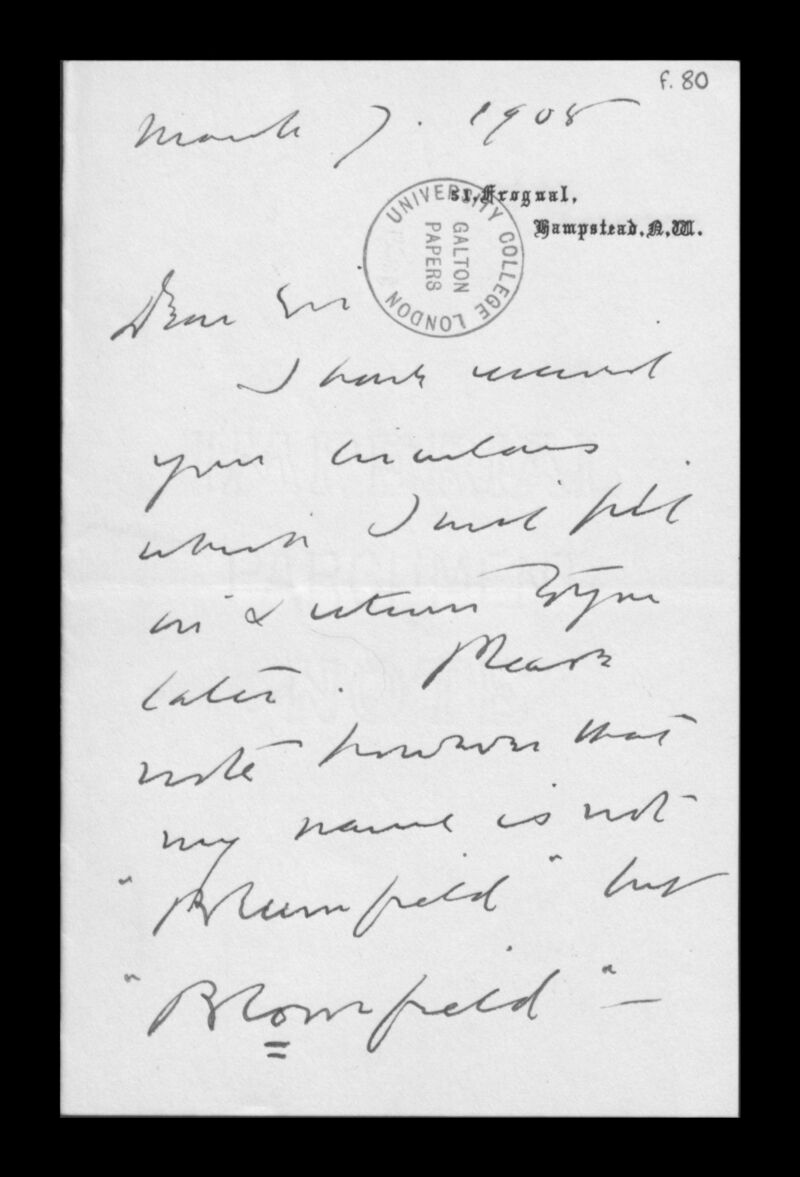 f. 80
March 7. 1905
51, Frognal,
Hampstead, N.W.
UNIVERSITY COLLEGE LONDON
GALTON
PAPERS
Dear Sir
I have received
your circulars
which I will fill
in & return to you
later. Please
note however that
my name is not
"Blumfield" but
"Blomfield" —